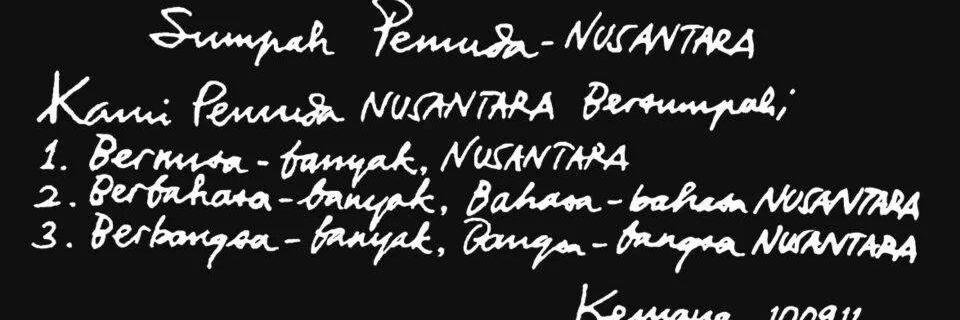 Sumpah Pemuda - NUSANTARA
Kami Pemuda NUSANTARA Bersumpah;
1. Bernusa - banyak, NUSANTARA
2. Berbahasa - banyak, Bahasa - bahasa NUSANTARA
3. Berbangsa - banyak, Bangsa - bangsa NUSANTARA
Kemang 100911